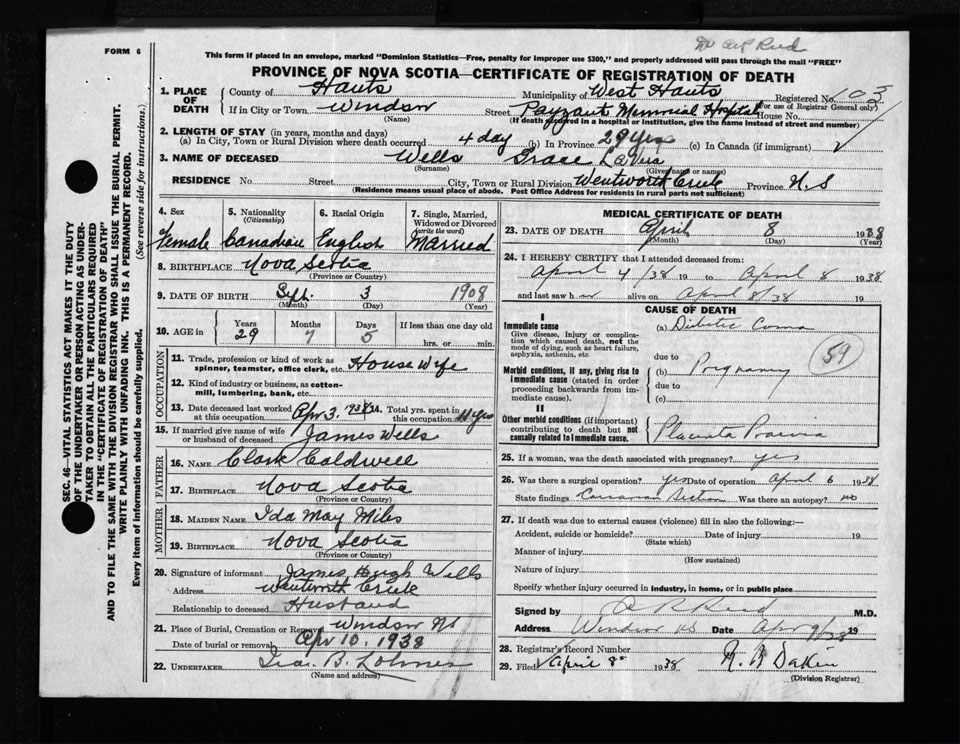 FORM 6
Dr A R Reid
This form if placed in an envelope, marked "Dominion Statistics—Free, penalty for improper use $300," and properly addressed will pass through the mail "FREE"
PROVINCE OF NOVA SCOTIA—CERTIFICATE OF REGISTRATION OF DEATH
1. PLACE OF DEATH
County of Hants Municipality of West Hants Registered No. 103
(For use of Registrar General only)
If in City or Town Windsor Street Payzant Memorial Hospital House No.
(Name) (If death occurred in a hospital or institution, give the name instead of street and number)
2. LENGTH OF STAY (in years, months and days)
(a) In City, Town or Rural Division where death occurred 4 day (b) In Province 29 Yrs (c) In Canada (if immigrant)
3. NAME OF DECEASED Wells Grace LaVus
(Surname) (Given name or names)
RESIDENCE No. Street City, Town or Rural Division Wentworth Creek Province N.S
(Residence means usual place of abode. Post Office Address for residents in rural parts not sufficient)
SEC. 46—VITAL STATISTICS ACT MAKES IT THE DUTY
OF THE UNDERTAKER OR PERSON ACTING AS UNDER-
TAKER TO OBTAIN ALL THE PARTICULARS REQUIRED
IN THE "CERTIFICATE OF REGISTRATION OF DEATH"
AND TO FILE THE SAME WITH THE DIVISION REGISTRAR WHO SHALL ISSUE THE BURIAL PERMIT.
WRITE PLAINLY WITH UNFADING INK. THIS IS A PERMANENT RECORD.
Every item of information should be carefully supplied. (See reverse side for instructions.)
4. Sex 5. Nationality 6. Racial Origin 7. Single, Married,
(Citizenship) Widowed or Divorced
(write the word)
Female Canadian English Married
8. BIRTHPLACE Nova Scotia
(Province or Country)
9. DATE OF BIRTH Sept. 3 1908
(Month) (Day) (Year)
10. AGE in Years Months Days If less than one day old
29 7 5 hrs. or min.
OCCUPATION
11. Trade, profession or kind of work as
spinner, teamster, office clerk, etc. House Wife
12. Kind of industry or business, as cotton-
mill, lumbering, bank, etc.
13. Date deceased last worked Apr 3. 1938 Total yrs. spent in
at this occupation this occupation 11 yrs
15. If married give name of wife
or husband of deceased James Wells
FATHER
16. NAME Clark Caldwell
17. BIRTHPLACE Nova Scotia
(Province or Country)
MOTHER
18. MAIDEN NAME Ida May Miles
19. BIRTHPLACE Nova Scotia
(Province or Country)
20. Signature of informant James Hugh Wells
Address Wentworth Creek
Relationship to deceased Husband
21. Place of Burial, Cremation or Removal Windsor NS
Date of burial or removal Apr 10. 1938
22. UNDERTAKER Ira. B. Lohnes
(Name and address)
MEDICAL CERTIFICATE OF DEATH
23. DATE OF DEATH April 8 1938
(Month) (Day) (Year)
24. I HEREBY CERTIFY that I attended deceased from:
April 4/38 19 to April 8 1938
and last saw h er alive on April 8/38 19
CAUSE OF DEATH
I
Immediate cause (a) Diabetic Coma
Give disease, injury or complica-
tion which caused death, not the
mode of dying, such as heart failure,
asphyxia, asthenia, etc.
due to
59
Morbid conditions, if any, giving rise to
immediate cause (stated in order
proceeding backwards from im-
mediate cause).
(b) Pregnancy
due to
(c)
II
Other morbid conditions (if important)
contributing to death but not
causally related to immediate cause.
Placenta Praevia
25. If a woman, was the death associated with pregnancy? yes
26. Was there a surgical operation? yes Date of operation April 6 1938
State findings Caesarean Section Was there an autopsy? no
27. If death was due to external causes (violence) fill in also the following:—
Accident, suicide or homicide? Date of injury 19
(State which)
Manner of injury
(How sustained)
Nature of injury
Specify whether injury occurred in industry, in home, or in public place
Signed by A R Reid M.D.
Address Windsor NS Date Apr 9/38 19
28. Registrar's Record Number
29. Filed April 8 1938 Dakin
(Division Registrar)